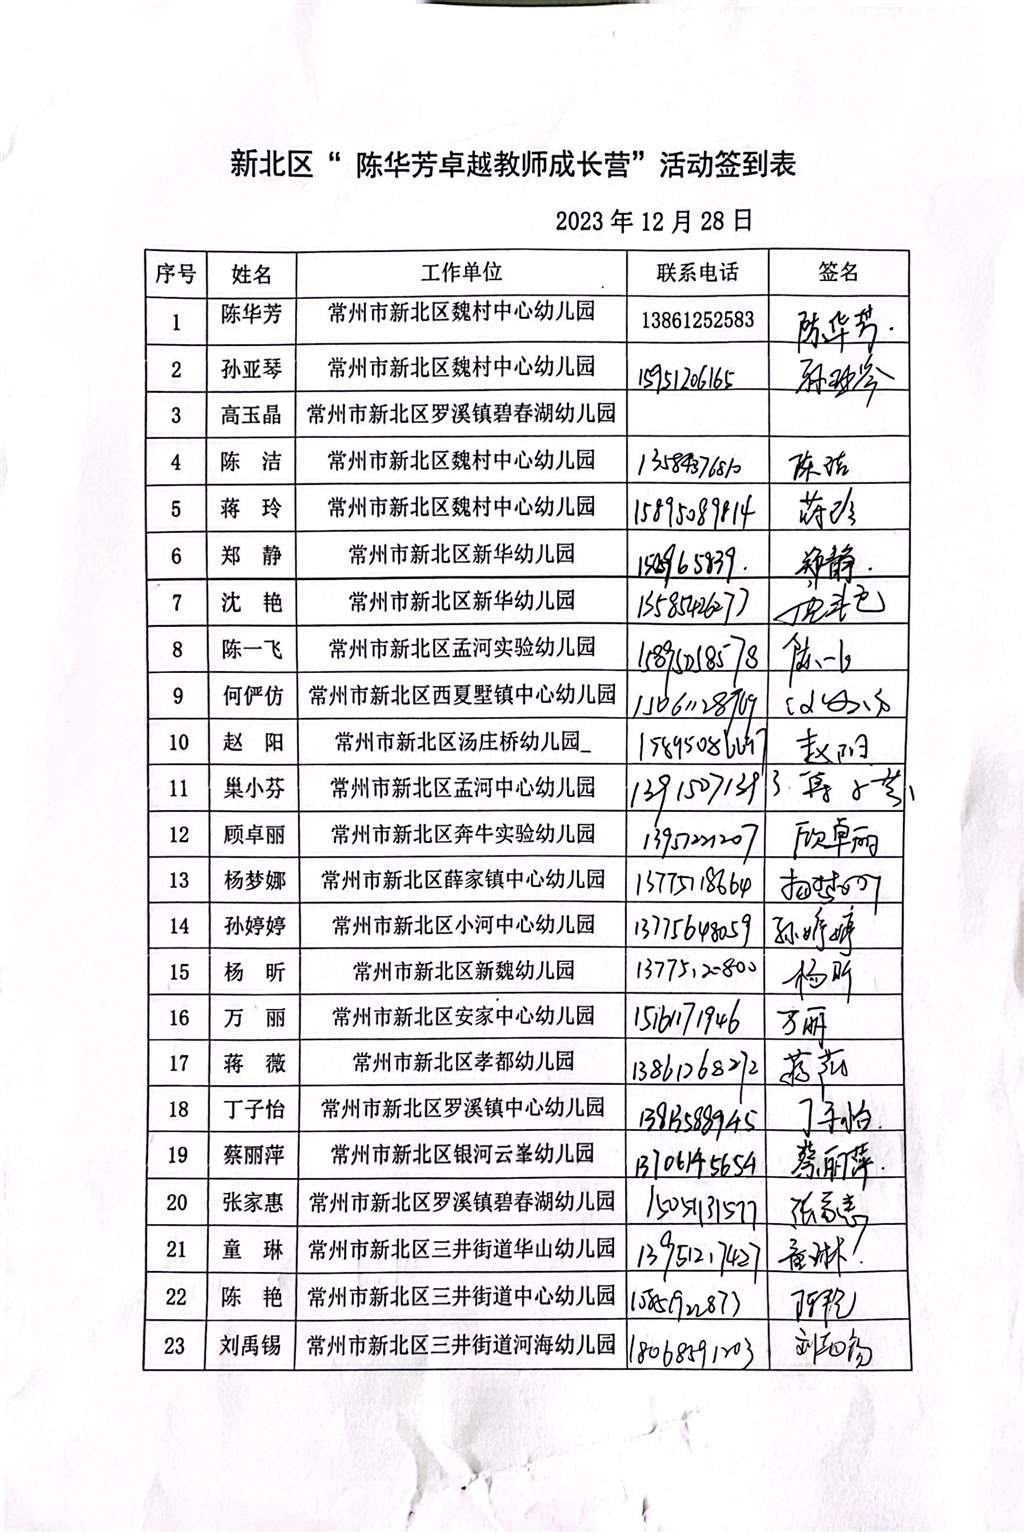 新北区“ 陈华芳卓越教师成长营”活动签到表
2023 年 12 月 28 日
序号 姓名 工作单位 联系电话 签名
1 陈华芳 常州市新北区魏村中心幼儿园 13861252583 陈华芳.
2 孙亚琴 常州市新北区魏村中心幼儿园 15951206165 孙亚琴
3 高玉晶 常州市新北区罗溪镇碧春湖幼儿园
4 陈 洁 常州市新北区魏村中心幼儿园 陈洁
5 蒋 玲 常州市新北区魏村中心幼儿园 15895089814 蒋玲
6 郑 静 常州市新北区新华幼儿园 郑静.
7 沈 艳 常州市新北区新华幼儿园 13585426277 沈艳
8 陈一飞 常州市新北区孟河实验幼儿园 15895018578 陈一飞
9 何俨仿 常州市新北区西夏墅镇中心幼儿园 15061128769
10 赵 阳 常州市新北区汤庄桥幼儿园_ 赵阳
11 巢小芬 常州市新北区孟河幼儿园 13915071393
12 顾卓丽 常州市新北区奔牛实验幼儿园 顾卓丽
13 杨梦娜 常州市新北区薛家镇中心幼儿园 13775118664 杨梦娜
14 孙婷婷 常州市新北区小河中心幼儿园 13775648059 孙婷婷
15 杨 昕 常州市新北区新魏幼儿园 13775120800 杨昕
16 万 丽 常州市新北区安家中心幼儿园 15161171946 万丽
17 蒋 薇 常州市新北区孝都幼儿园 13861268272 蒋薇
18 丁子怡 常州市新北区罗溪镇中心幼儿园 13813588945 丁子怡.
19 蔡丽萍 常州市新北区银河云峯幼儿园 13706145654 蔡丽萍.
20 张家惠 常州市新北区罗溪镇碧春湖幼儿园 15051131577 张家惠
21 童 琳 常州市新北区三井街道华山幼儿园 13951217427 童琳!
22 陈 艳 常州市新北区三井街道中心幼儿园 15851922873 陈艳
23 刘禹锡 常州市新北区三井街道河海幼儿园 18068591203 刘禹锡